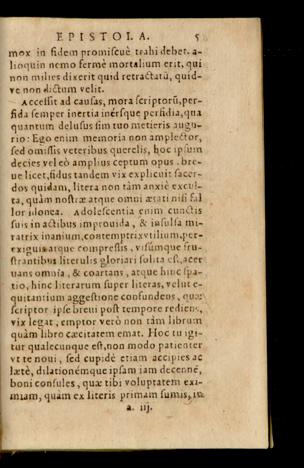 EPISTOLA. 5
mox in fidem promiscuè trahi debet. a-
lioquin nemo fermè mortalium erit, qui
non milies dixerit quid retractatũ, quid-
ve non dictum velit.
Accessit ad causas, mora scriptorũ, per-
fida semper inertia inérsque perfidia, qua
quantum delusus sim tuo metieris augu-
rio: Ego enim memoria non amplector,
sed omissis veteribus querelis, hoc ipsum
decies vel eò amplius ceptum opus. bre-
ue licet, fidus tandem vix explicuit sacer-
dos quidam, litera non tàm anxiè excul-
ta, quàm nostræ atque omni ætati nisi fal
lor idonea. Adolescentia enim cunctis
suis in actibus improuida, & insulsa mi-
ratrix inanium, contemptrix vtilium, per-
exiguis atque compressis, visúmque fru-
strantibus literulis gloriari solita est, acer
uans omnia, & coartans, atque hinc spa-
tio, hinc literarum super literas, velut e-
quitantium aggestione confundens, quæ
scriptor ipse breui post tempore rediens,
vix legat, emptor verò non tàm librum
quàm libro cæcitatem emat. Hoc tu igi-
tur qualecunque est, non modo patienter
vt te noui, sed cupidè etiam accipies ac
lætè, dilationémque ipsam iam decennẽ,
boni consules, quæ tibi voluptatem exi-
miam, quàm ex literis primam sumis,
a. iij.